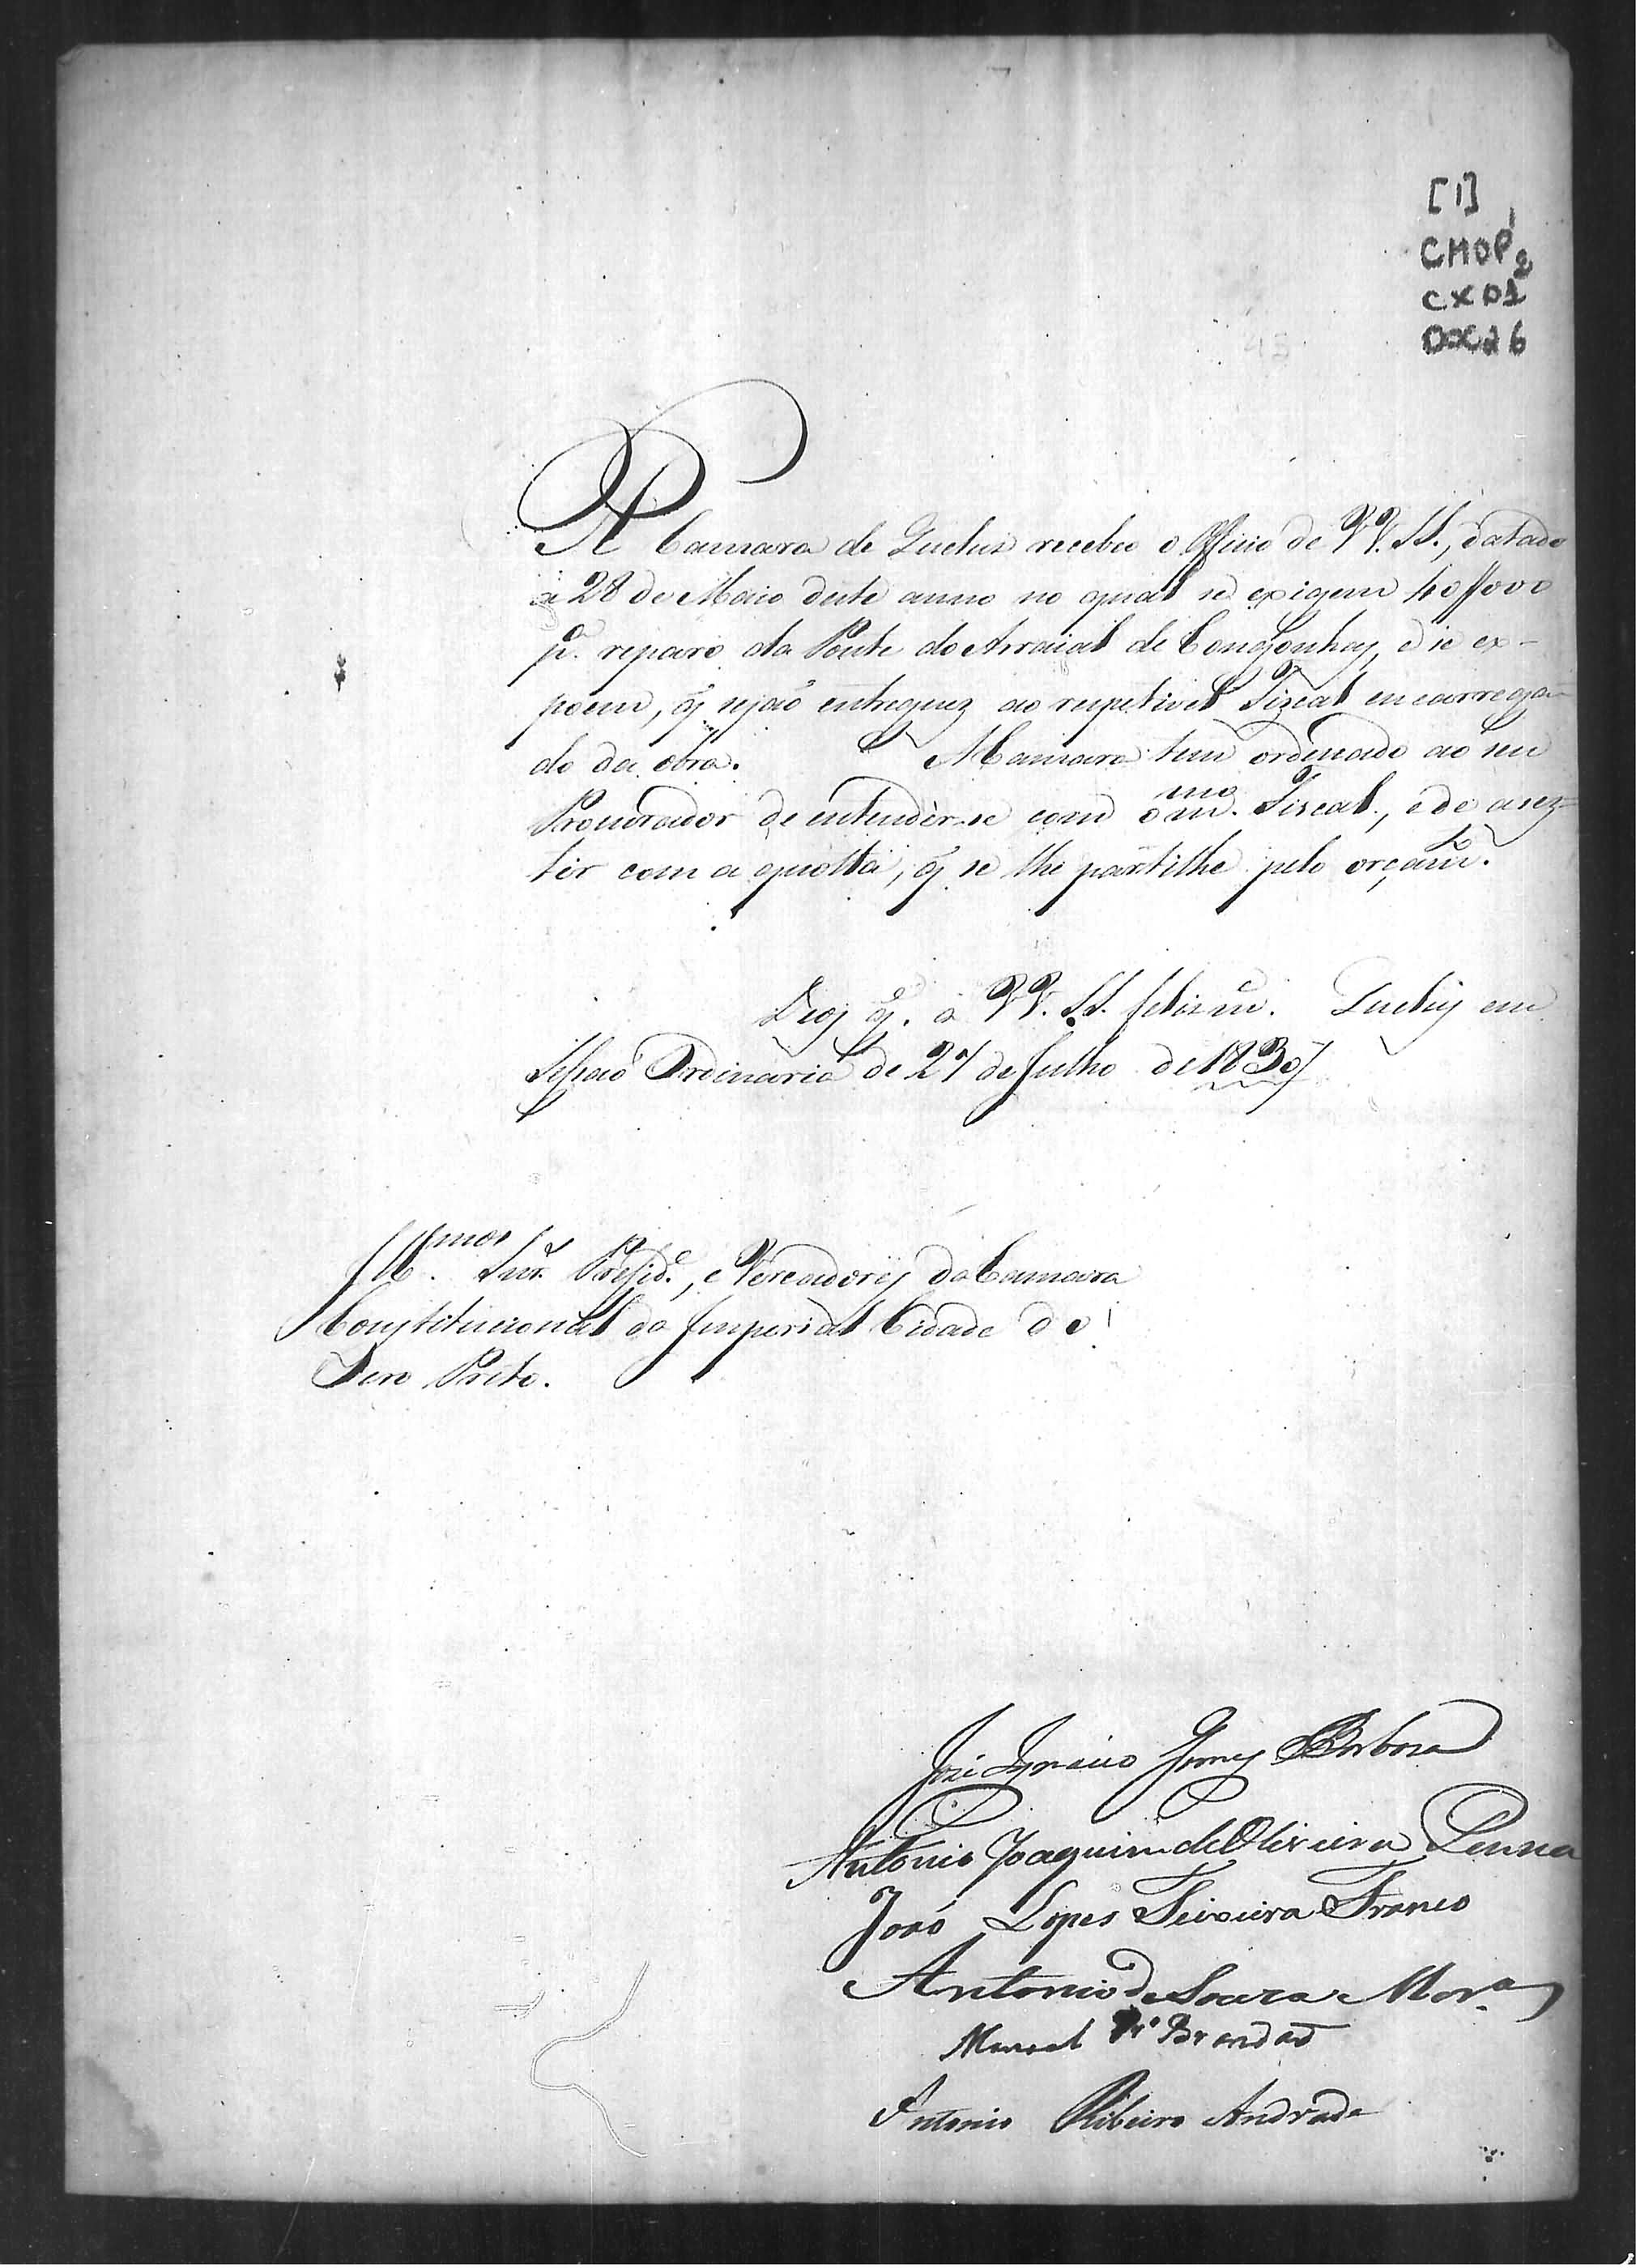 [1]
CMOP 2
CX 01
DOC 26
A Camara de Queluz recebeo o Officio de VV. SS., datado
a 28 de Maio deste anno no qual se exigem 40$000
pª. reparo da Ponte do Arraial de Congonhas, e se ex-
poem, q̃ sejaõ entreguez ao respetivel Fizcal encarrega-
do da obra. A Camara tem ordenado ao seu
Procurador de entender-se com o mmo. Fizcal, e de asez-
tir com a quotta, q̃ se lhe partilhe pelo orçamto.
Deos gẽ. a VV. SS. felizm̃. Queluz em
Sessaõ Ordinaria de 27 de Julho de 1830
Illmos. Snrs. Presidẽ., e Vereadores da Camara
Constitucional da Imperial Cidade do
Ouro Preto.
José Ignacio Gomes Barbosa
Antonio Joaquim de Oliveira Penna
Joaõ Lopes Teixeira Franco
Antonio de Souza Morª
Manoel Brandaõ
Antonio Ribeiro Andrade